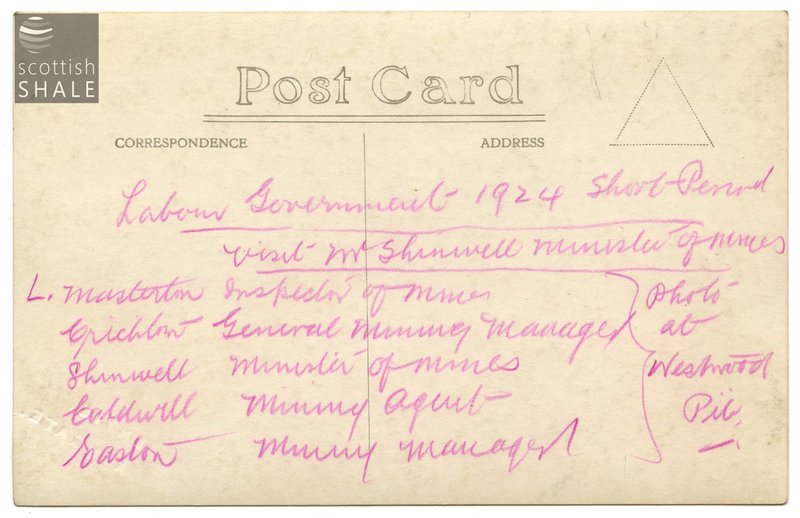 scottish
SHALE
Post Card
CORRESPONDENCE
ADDRESS
Labour Government 1924 Short Period
visit Mr Shinwell Minister of Mines
L. Masterton Inspector of Mines
Crichton General Mining Manager
Shinwell Minister of Mines
Caldwell Mining Agent
Gaston Mining Manager
Photo
at
Westwood
Pit